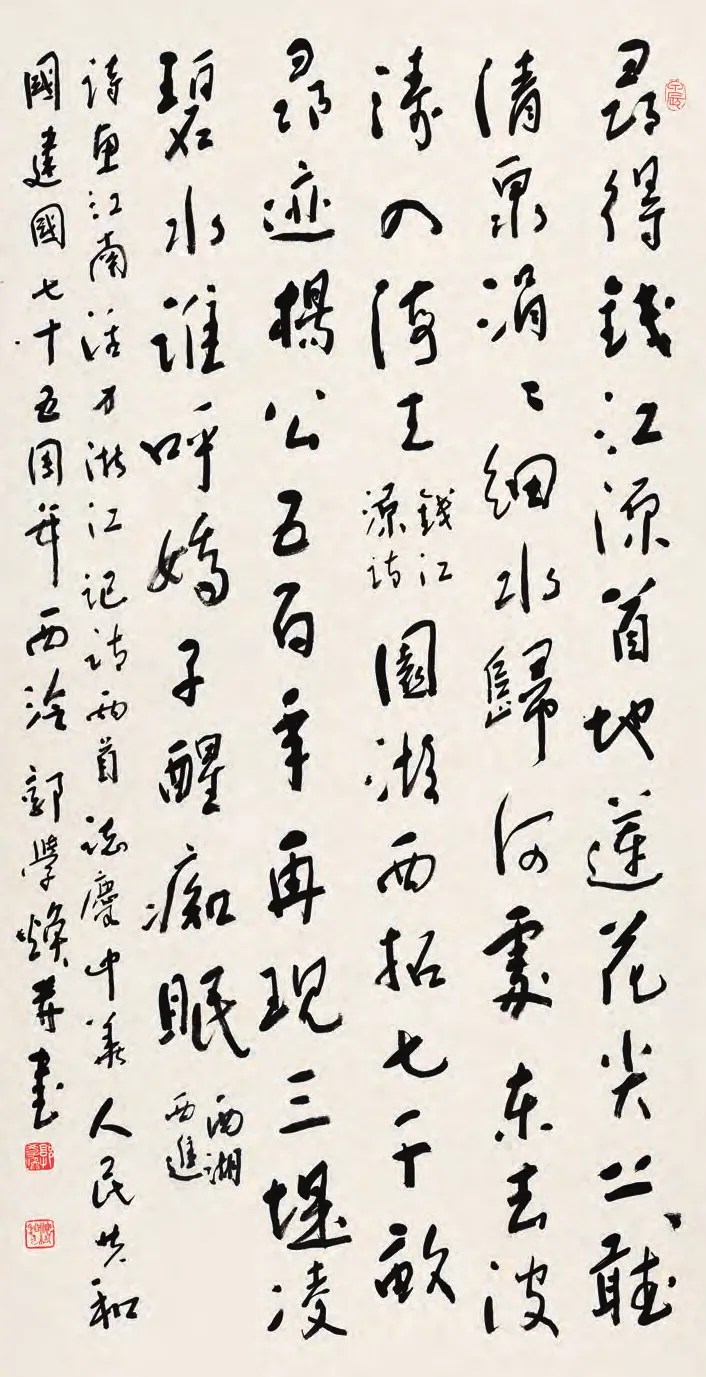 尋得錢江源首地蓮花尖上聽
清泉涓〻細水歸何處東去波
濤入海天 錢江源詩 園游西拓七千畝
尋迹楊公五百年再現三堤凌
碧水誰呼嬌子醒痴眠 西湖西進
詩畫江南活力浙江記詩兩首誌慶中華人民共和
國建國七十五周年西泠郭學煥并書